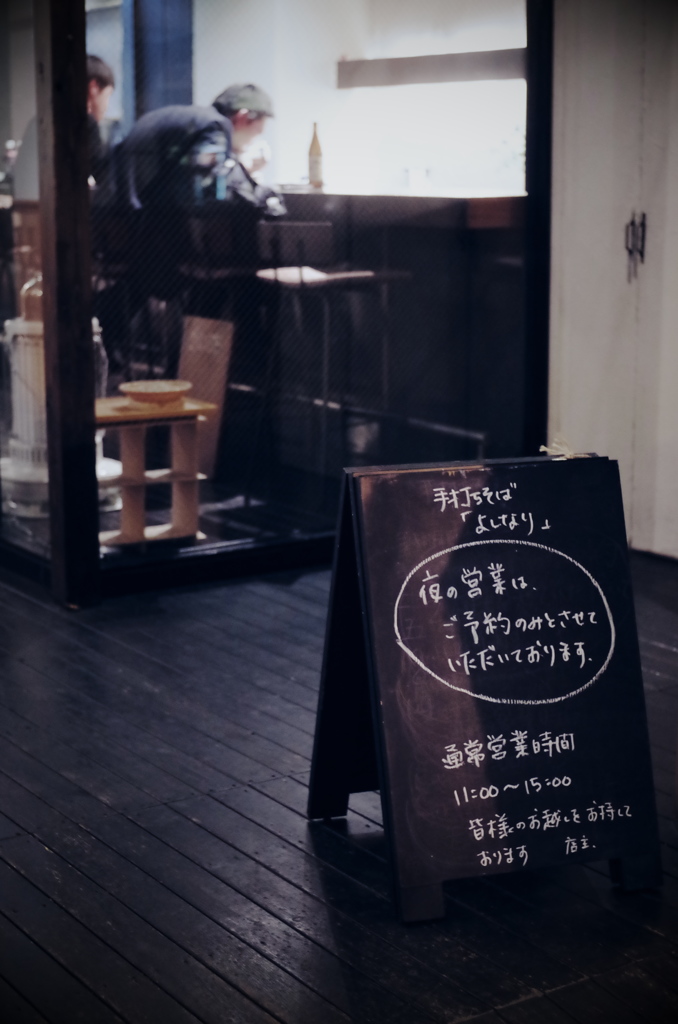 手打ちそば
「よしなり」
夜の営業は、
ご予約のみとさせて
いただいております。
通常営業時間
11:00～15:00
皆様のお越しをお待して
おります 店主.